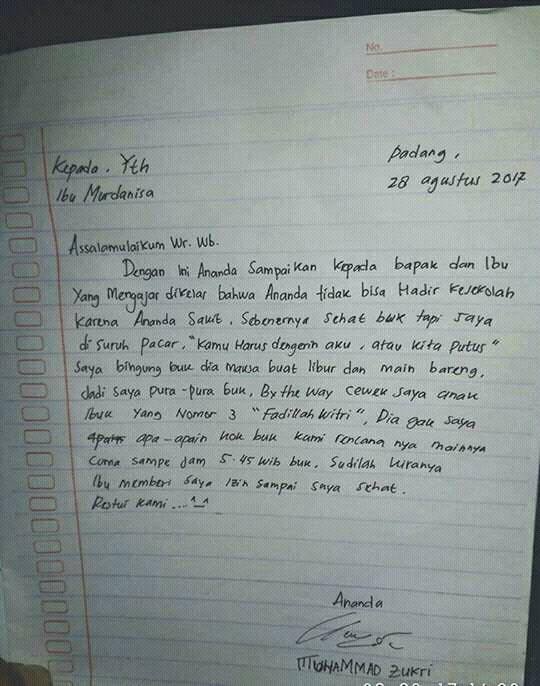 No.
Date :
Padang,
Kepada. Yth
28 agustus 2017
Ibu Murdanisa
Assalamulaikum Wr. Wb.
Dengan Ini Ananda Sampaikan Kepada bapak dan Ibu
Yang Mengajar dikelas bahwa Ananda tidak bisa Hadir Kesekolah
Karena Ananda Sakit. Sebenernya sehat buk tapi saya
di suruh pacar, "Kamu Harus dengerin aku, atau kita Putus"
Saya bingung buk dia maksa buat libur dan main bareng,
Jadi saya pura-pura buk, By the way cewek saya anak
Ibuk Yang Nomor 3 "Fadillah Witri", Dia gak saya
apa-apain kok buk kami rencana nya mainnya
Cuma sampe Jam 5.45 Wib buk. Sudilah kiranya
Ibu memberi saya Izin sampai saya sehat.
Restui kami...^_^
Ananda
MUHAMMAD Zukri